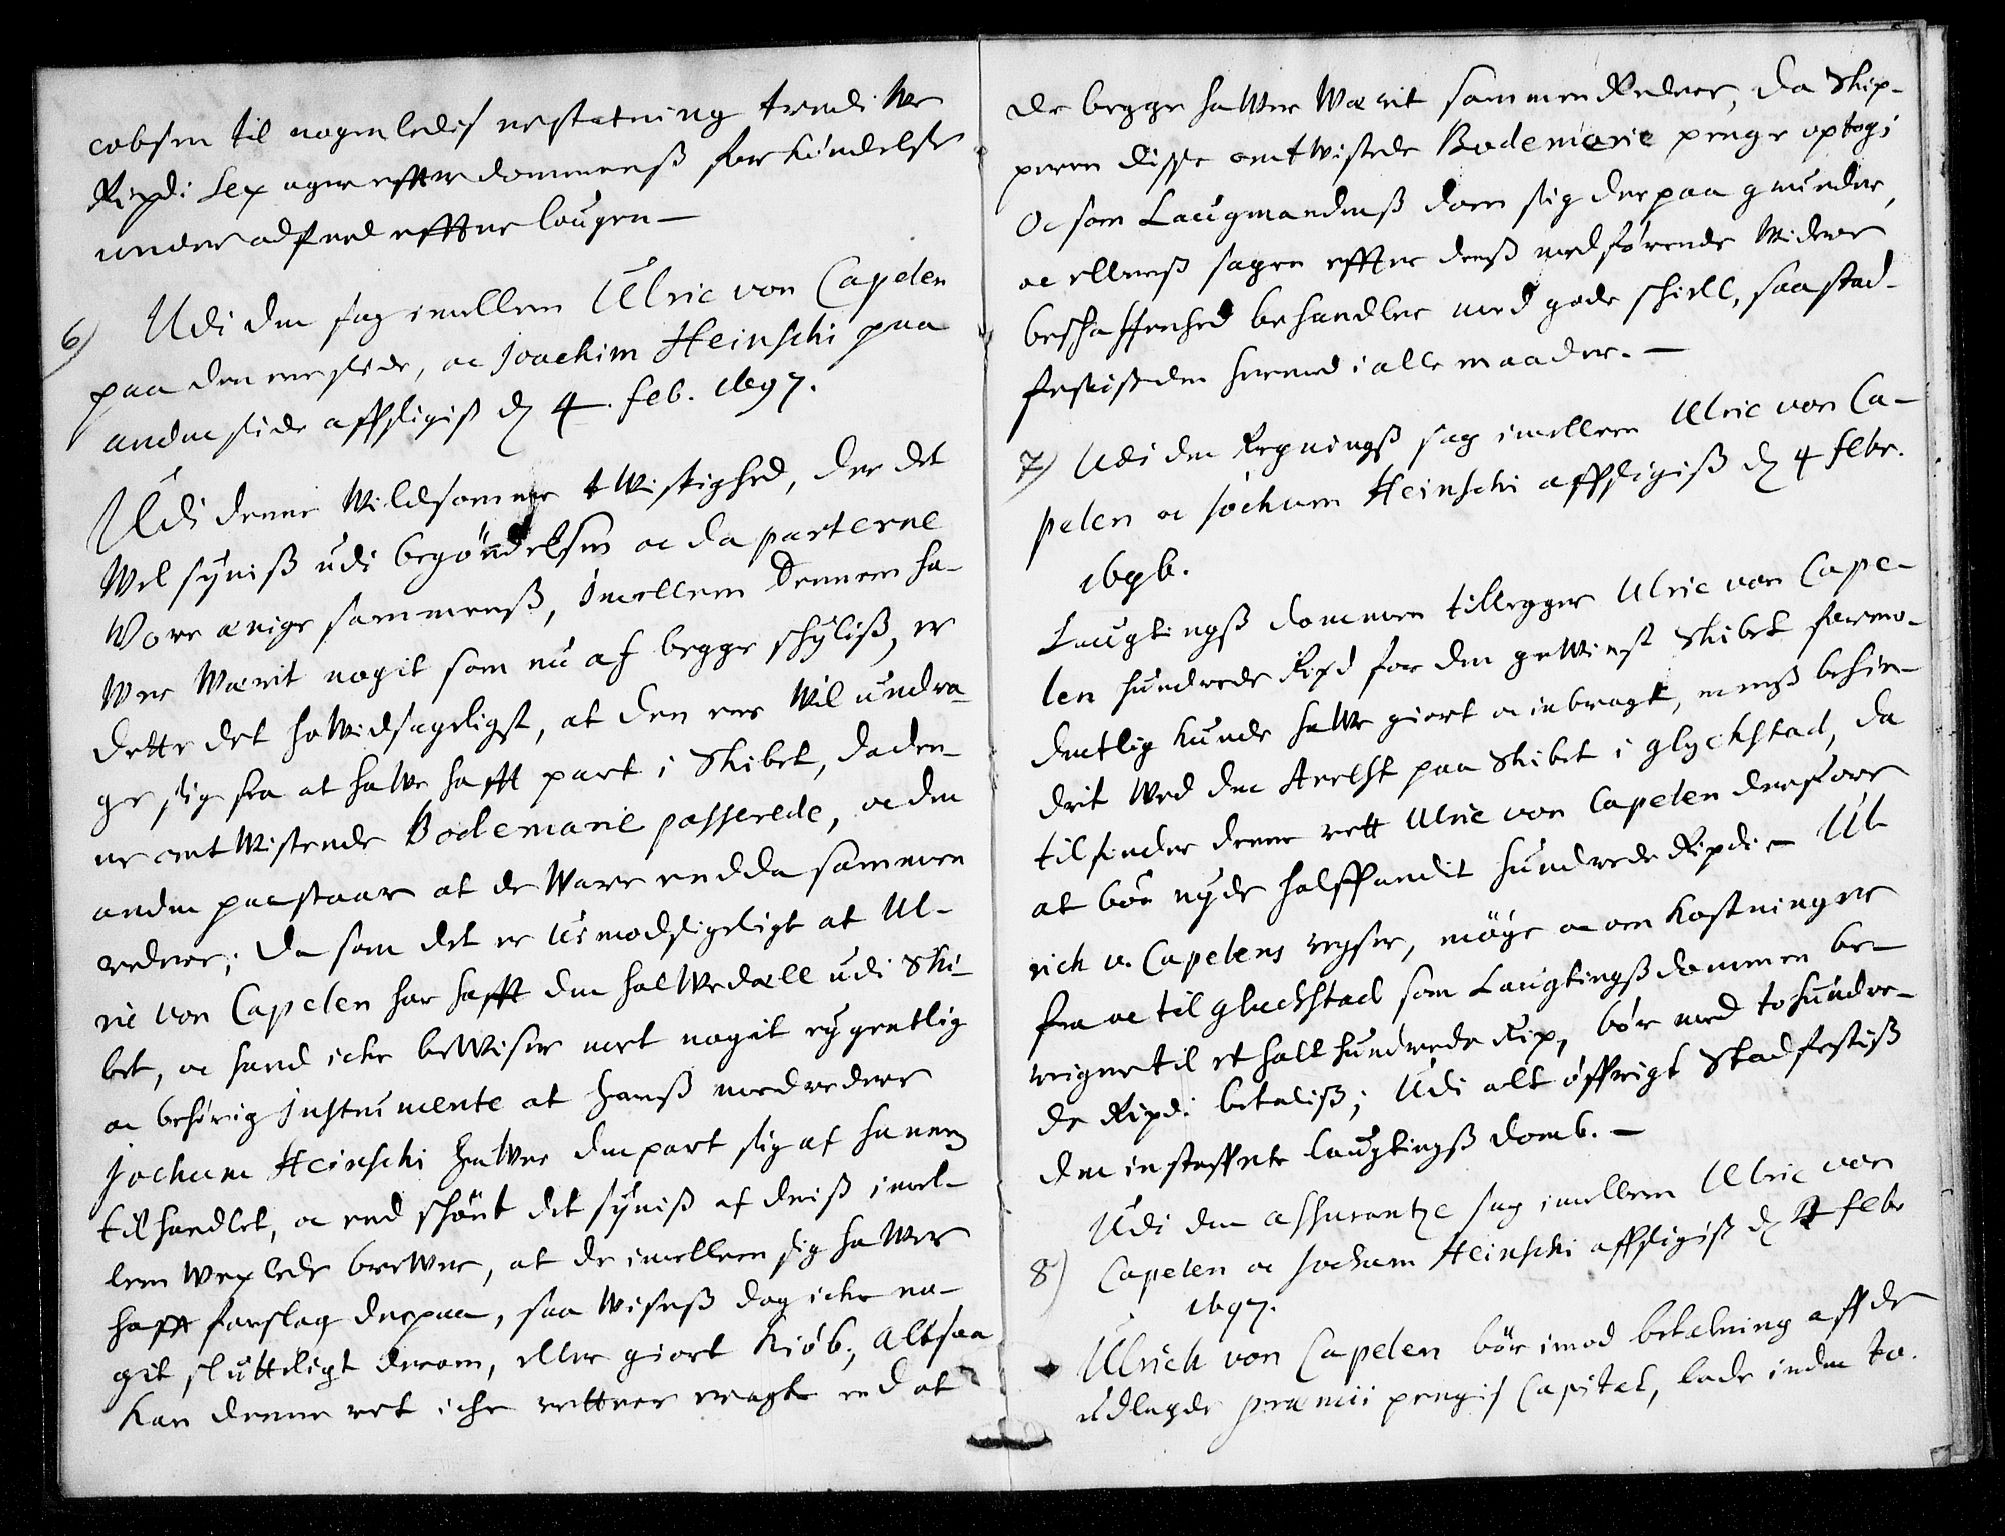 cobsen til nogenledis erstatning trendi
Rixdr: Sex uger effter dommenß forkündelse
under adferd effter lougen —
6) Udi den sag imellem Ulric von Capelen
paa den eene side, oc Joachim Heinschi paa
anden side affsigiß d: 4. feb. 1697.
Udi denne Wildsomme twistighed, der det
Wel syniß udi begÿndelsen oc da parterne
Vare ænige sammenß, imellem dennem ha-
Wer Wærit nogit som nu af begge schÿliß, er
dette det howidsageligst, at den eene Wil undra-
ge sig fra at haWe hafft part i Skibet, da den-
ne omtWistende Bodemarie passerede, oc den
anden paastaar at de Ware endda sammen
redere; Da som det er uimodsigeligt at Ul-
ric von Capelen har hafft den halWedeell udi Ski-
bet, oc hand icke beWiser met nogit eÿgentlig
oc behørig Instrumente at hanß medredere
Jochum Heinschi haWer den part sig af hannem
tilhandlet, oc end schönt det sÿniß af deriß imel-
lem Wexlede breWer, at de imellem sig haWer
hafft forslag derpaa, saa Wiseß dog icke no-
git sluttligt derom, eller giort Kiøb; Altsaa
Kan denne ret icke rettere eragte end at
de begge haWer Wærit sammen Redere, da Skip-
peren disse omtWistede Bodemarie penge optog;
Oc som Laugmandenß dom sig derpaa grunder,
oc ellerß sagen effter denß medførende Widere
beschaffenhed behandler med gode schiell, saa stad-
festiß den hermed i alle maader. —
7) Udi den Regningß sag imellem Ulric von Ca-
pelen oc Jochum Heinschi affsigiß d: 4 febr.
1696.
Laugtingß dommen tillegger Ulric von Cape-
len hundrede Rixd for den geWinst Skibet formo-
dentlig kunde haWe giort oc inbragt, menß behin-
drit Wed den Arrest paa Skibet i glyckstad, da
tilfinder denne rett Ulric von Capelen derfore
at bör nyde halffandit hundrede Rixdr — Ul-
rich v. Capelens reyser, möye oc omkostninger
fra oc til gluckstad som Laugtingßdommen be-
reigner til et halt hundrede Rix, bör med to hundre-
de Rixdr: betaliß; Udi alt öffrigt Stadfestiß
den insteffnte laugtingß domb. —
Udi den assurantze sag imellem Ulric von
8) Capelen oc Jochum Heinschi affsigiß d: 4 febr
1697.
Ulrich von Capelen bör imod betalning aff de
udlagde præmii pengis Capital, lade inden to.